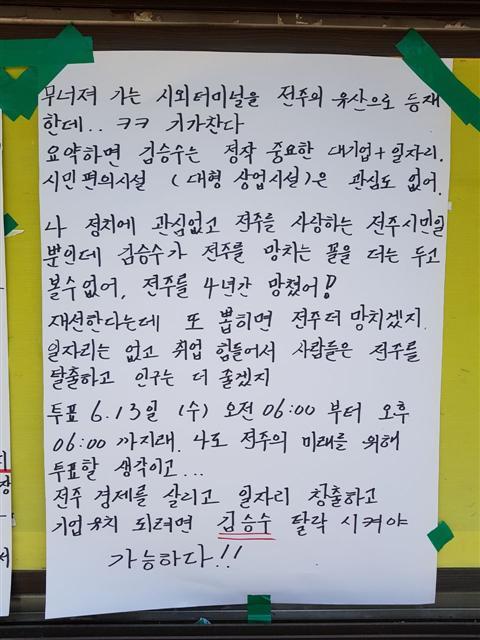 무너져 가는 시외터미널을 전주의 유산으로 등재
한데.. ㅋㅋ 기가찬다
요약하면 김승수는 정작 중요한 대기업+일자리.
시민편의시설 (대형 상업시설)은 관심도 없어.
나 정치에 관심없고 전주를 사상하는 전주시민일
뿐인데 김승수가 전주를 망치는 꼴을 더는 두고
볼수없어. 전주를 4년간 망쳤어!
재선한다는데 또 뽑히면 전주더 망치겠지.
일자리는 없고 취업 힘들어서 사람들은 전주를
탈출하고 인구는 더 줄겠지
투표 6.13일 (수) 오전 06:00 부터 오후
06:00 까지래. 나도 전주의 미래를 위해
투표할 생각이고...
전주 경제를 살리고 일자리 창출하고
기업유치 되려면 김승수 탈락 시켜야
가능하다!!
장
서